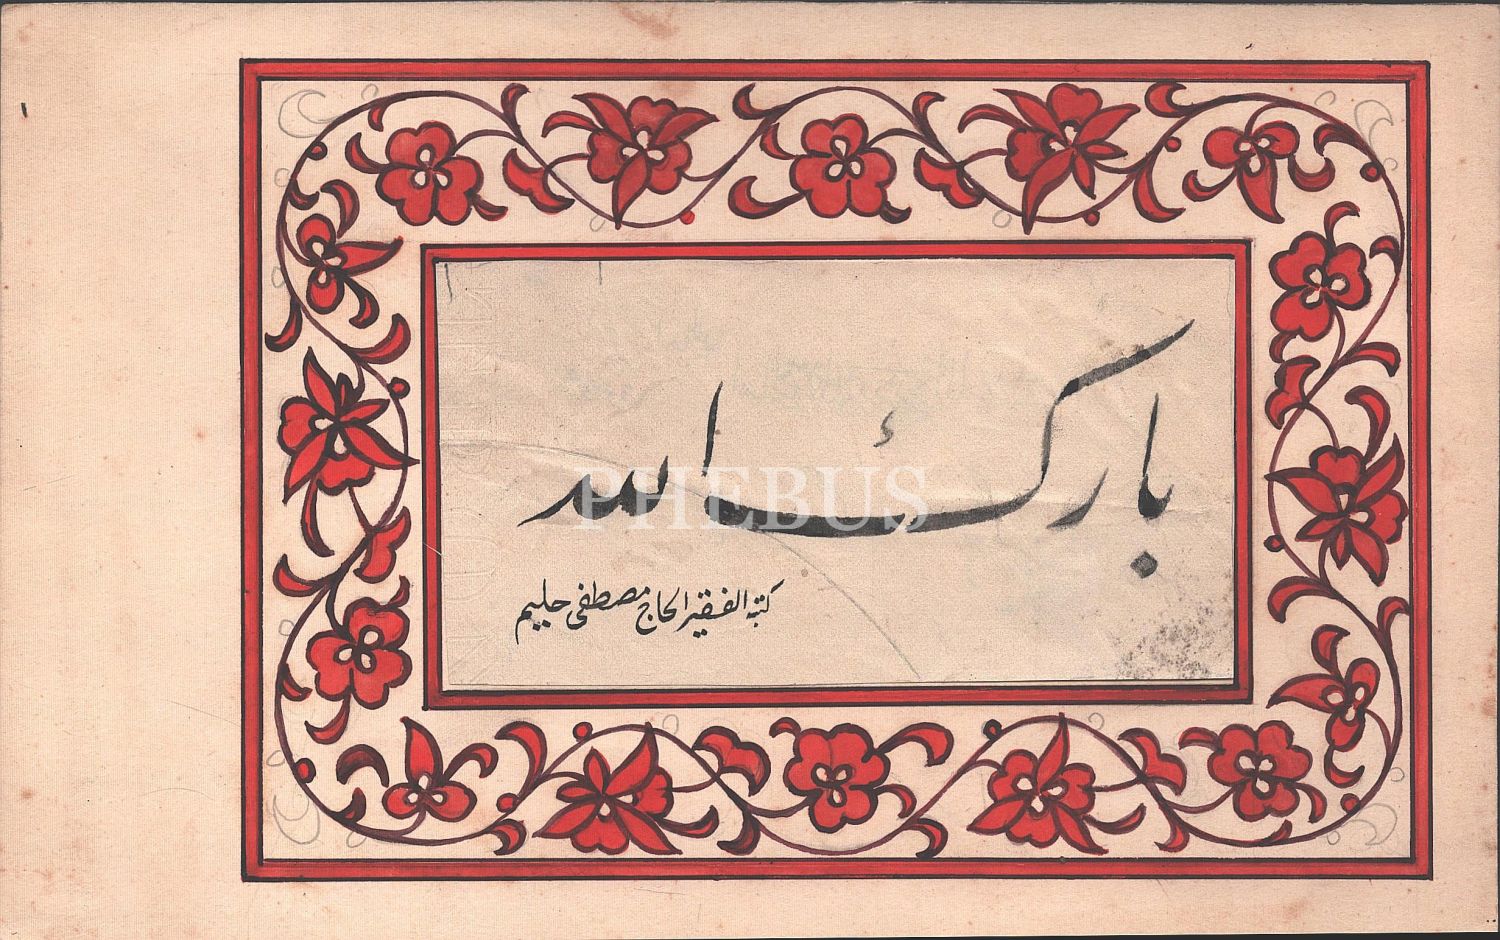 بارك الله
كتبه الفقير الحاج مصطفى حليم
PHEBUS